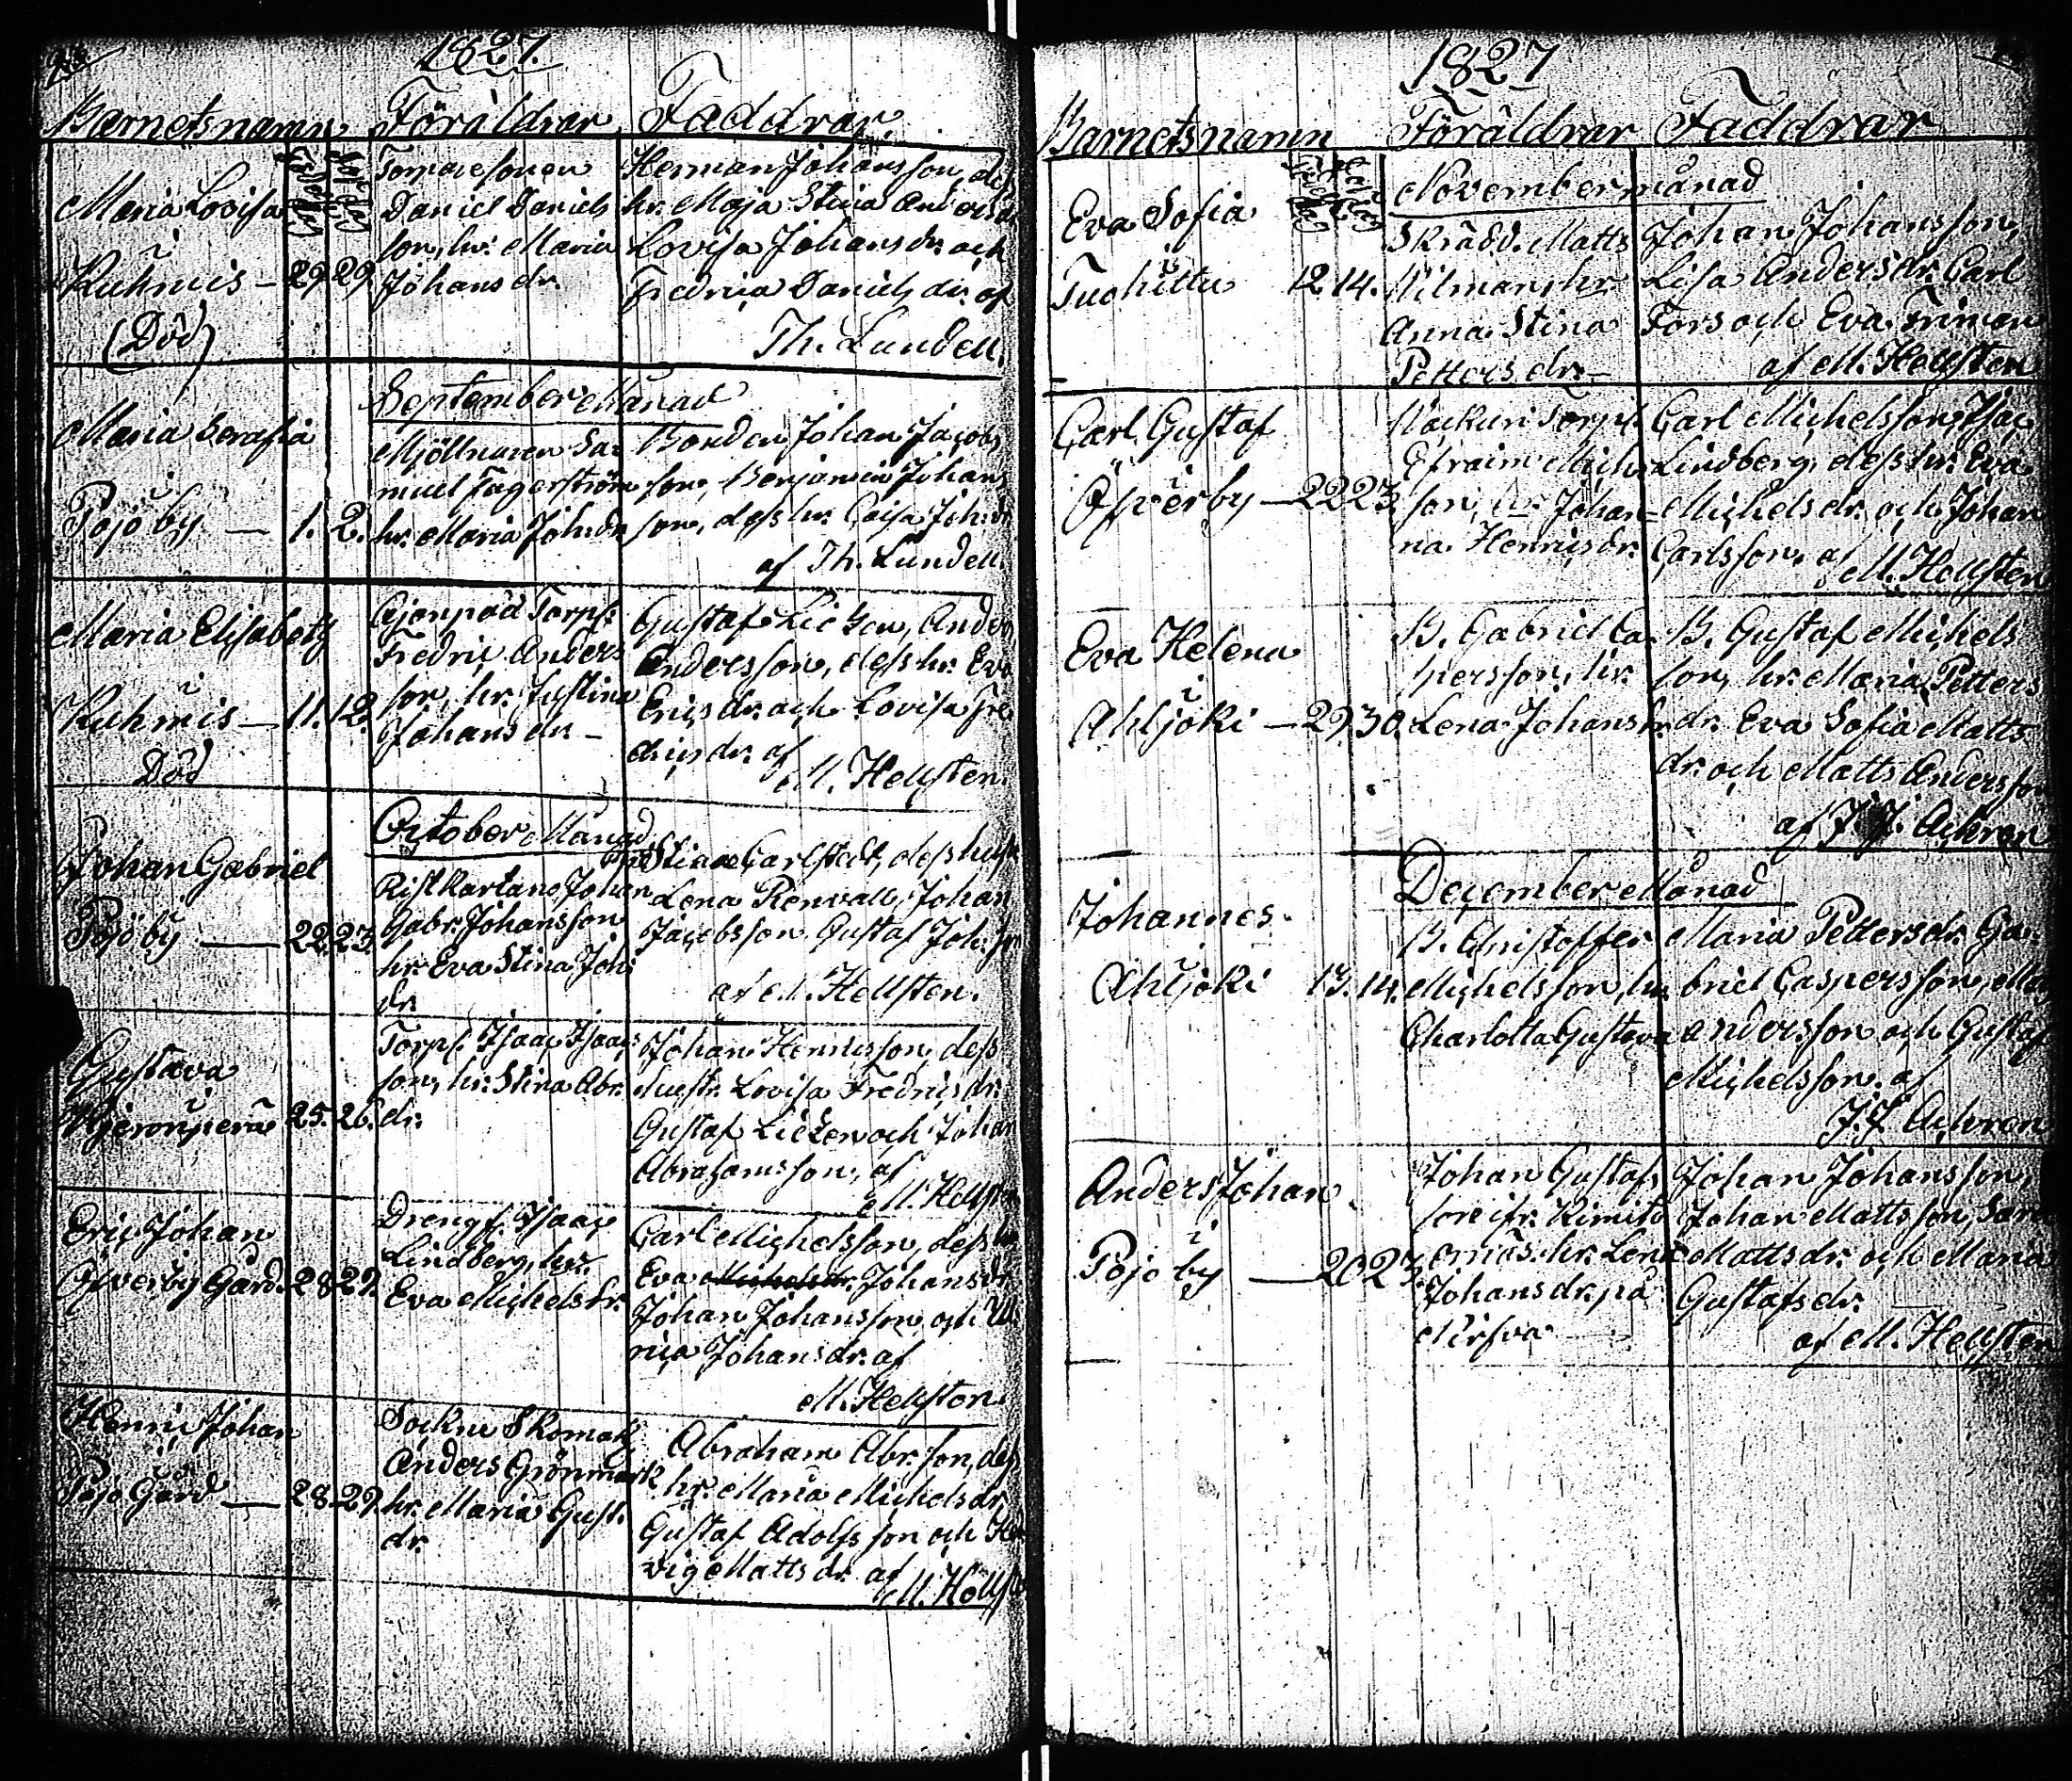 1827.
Barnetsnamn Föräldrar Faddrar
Födelsedag
Maria Lovisa
Kuhmis - 29 29.
(Död)
Daniel Daniels
son, hr. Maria
Johansdr.
Herman Johansson, dess
hr. Maja Stina Andersdr
Lovisa Johansdr. och
Fredrica Danielsdr. af
Th. Lundell.
September Månad
Maria Serafia
Pojo by — 1. 2.
Mjöllnaren Sa-
muel Fagerström
hr. Maria Joh:dr
Bonden Johan Jacobs
son, Benjamin Johans
son, dess hr. Caisa Joh:dr
af Th. Lundell.
Maria Elisabeth
i
Kuhmis — 11. 12.
Död
Torps.
Fredric Anders
son, hr. Justina
Johansdr. -
Gustaf Lietzen, Anders
Andersson, dess hr. Eva
Ericsdr. och Lovisa Fre
dricsdr. af
M. Hellsten.
October Månad
Johan Gabriel
i
Pojo by — 22. 23.
Johan
Gabr. Johansson
hr. Eva Stina Joh:
dr.
Carlstedt, dess hustr
Lena Renvall, Johan
Jacobsson Gustaf Joh:son
af M. Hellsten.
Gustava
25. 26.
Torps. Isaac Isaacs
son, hr. Stina Abr.
dr.
Johan Henricsson, dess
hustr. Lovisa Fredricsdr.
Gustaf Lietzen och Johan
Abrahamsson, af
M. Hellsten
Eric Johan
Öfverby Gård. 28 29.
Drengs. Isaac
Lindberg, hr.
Eva Michelsdr.
Carl Michelsson, dess hr
Eva Michelsdr. Johansdr
Johan Johansson, och Ul.
rica Johansdr. af
M. Hellsten.
Henric Johan
Pojo Gård — 28. 29.
Sockne Skomak.
Anders Grönmark
hr. Maria Gust.
dr.
Abraham Abr. son, dess
hr. Maria Michelsdr,
Gustaf Adolfsson och Hed
vig Mattsdr. af
M. Hellsten
1827
Barnetsnamn Föräldrar Faddrar
November månad
Eva Sofia
i
12. 14.
Skrädd. Matts
Vilman, hr.
Anna Stina
Pettersdr. -
Johan Johansson,
Lisa Andersdr. Carl
Fors och Eva Friman
af M. Hellsten
Carl Gustaf
i
Öfverby — 22 23.
Torps.
Efraim Michels
son, hr. Johan-
na Henricsdr.
Carl Michelsson, Isac
Lindberg, dess hr. Eva
Michelsdr. och Johan
Carlsson. af
M. Hellsten
Eva Helena
i
Ahljoki — 29. 30.
B. Gabriel Ca
spersson, hr.
Lena Johansdr.
B. Gustaf Michels
son, hr. Maria Petters
dr. Eva Sofia Matts
dr. och Matts Andersson
af J. J. Achren
December Månad
Johannes
i
Ahljoki 13. 14.
B. Christoffer
Michelsson, hr.
Charlotta Gustava
Maria Pettersdr. Ga-
briel Caspersson, Matts
Andersson och Gustaf
Michelsson. af
J. J. Achren
Anders Johan
i
Pojo by — 20 23.
Johan Gustafs
son ifr. Kimito
hr. Lena
Johansdr. på
Johan Johansson,
Johan Mattsson, Sara
Mattsdr. och Maria
Gustafsdr.
af M. Hellsten